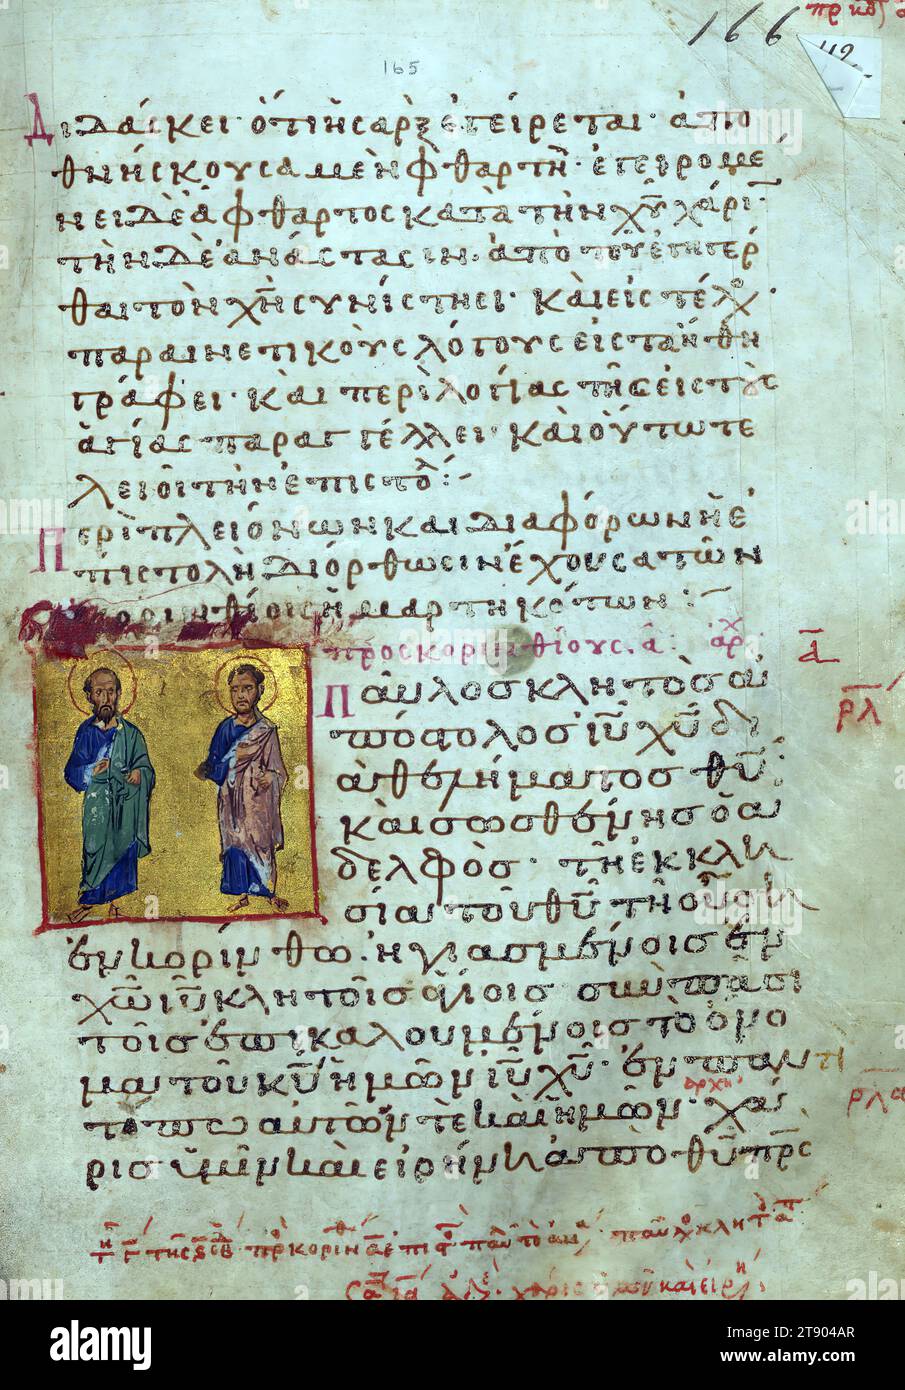 166
165
112
Διδάσκει· ὅτι ἡ σὰρξ ἐγείρεται· ἀπο
θνήσκουσα μὲν φθαρτὴ· ἐγειρομέ
νει δὲ ἄφθαρτος κατὰ τὴν χῡ χάριν·
τὴν δὲ ἀνάστασιν· ἀπὸ τοῦ ἐγηγέρ
θαι τὸν χν συνίστησι· καὶ εἰς τέλος
παραινετικοὺς λόγους εἰς τὰ ἤθη
γράφει· καὶ περὶ λογίας τῆς εἰς τοὺς
ἁγίας παραγγέλλει· καὶ οὕτω τε
λειοῖ τὴν ἐπιστολ :~
Περὶ πλειόνων καὶ διαφόρων ἡ ἐ
πιστολὴ διόρθωσιν ἔχουσα τῶν
κορινθίοις ἡμαρτηκότων :~
πρὸς κορινθίους. α: ἀρχ
Παῦλος κλητὸς ἀ
πόστολος ιῡ χῡ δι
ὰ θελήματος θῡ·
καὶ σωσθένης ὁ ἀ
δελφὸς· τῆ ἐκκλη
σία τοῦ θῡ τῆ οὔση
ἐν κορίνθω· ἡγιασμένοις ἐν
χω ιῡ κλητοῖς ἁγίοις σὺν πᾶσι
τοῖς ἐπικαλουμένοις τὸ ὄνο
μα τοῦ κῡ ἡμῶν ιῡ χῡ· ἐν παντὶ
τόπω αὐτῶν τὲ καὶ ἡμῶν· χά
ρις ὑμῖν καὶ εἰρήνη ἀπὸ θῡ πρς
α
ρλ
ἀρχ
ρλα
πρ κορινθ
χάρις ὑμῖν καὶ εἰρή
alamy
Image ID: 2T904AR
www.alamy.com